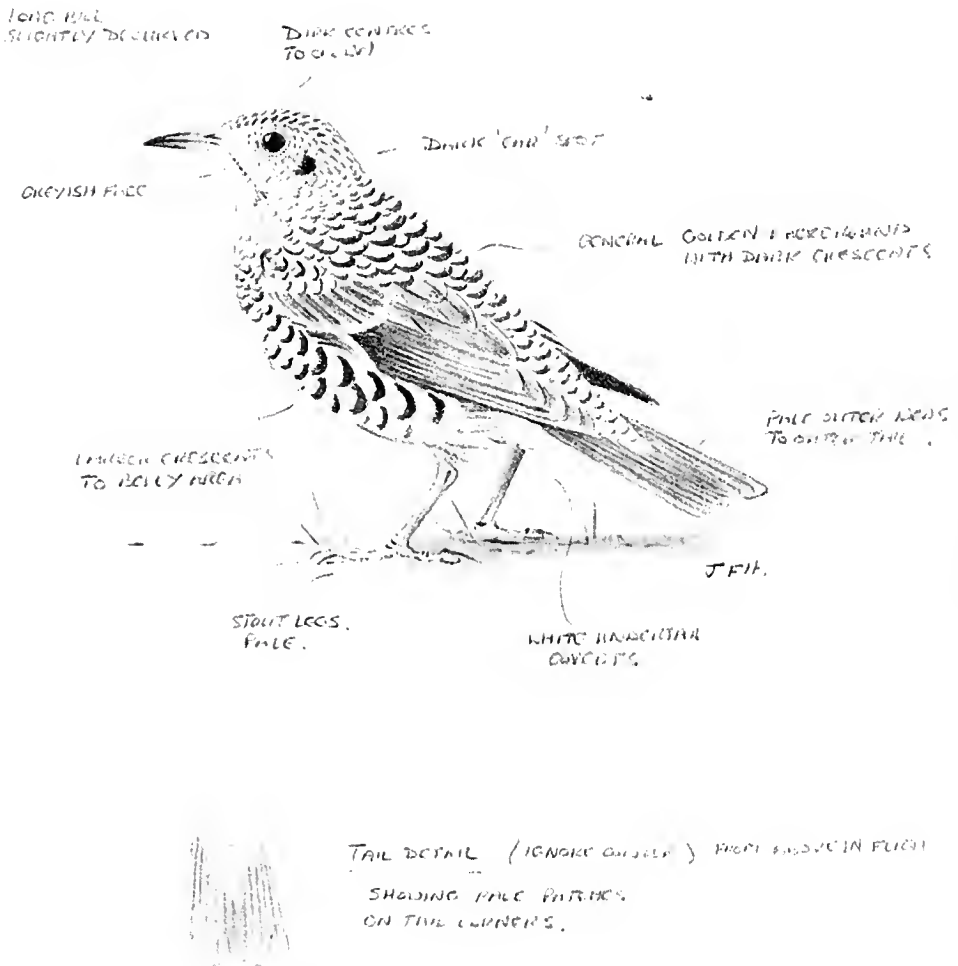 LONG BILL
SLIGHTLY DECURVED
DARK CENTRES
TO CROWN
DARK 'EAR' SPOT
GREYISH FACE
GENERAL GOLDEN BACKGROUND
WITH DARK CRESCENTS
PALE OUTER WEBS
TO OUTER TAIL.
LARGER CRESCENTS
TO BELLY AREA
JFH.
STOUT LEGS.
PALE.
WHITE UNDERTAIL
COVERTS.
TAIL DETAIL (IGNORE) FROM ABOVE IN FLIGHT
SHOWING PALE PATCHES
ON TAIL CORNERS.